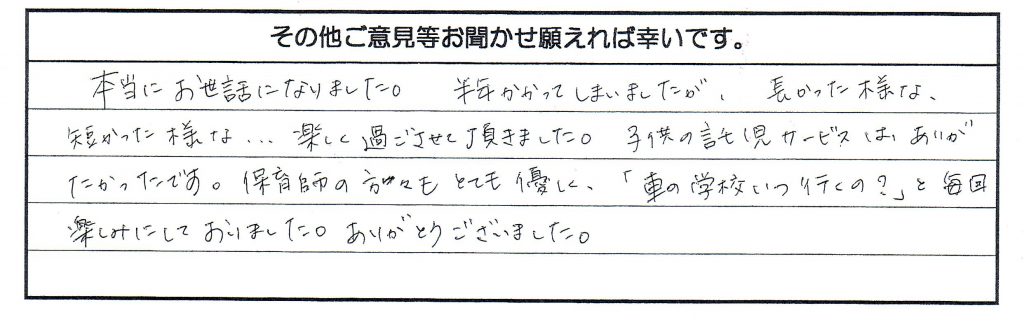 その他ご意見等お聞かせ願えれば幸いです。
本当にお世話になりました。 半年かかってしまいましたが、 長かった様な、
短かった様な... 楽しく過ごさせて頂きました。 子供の託児サービスは、ありが
たかったです。 保育師の方々もとても優しく、「車の学校いつ行くの?」と毎回
楽しみにしておりました。 ありがとうございました。